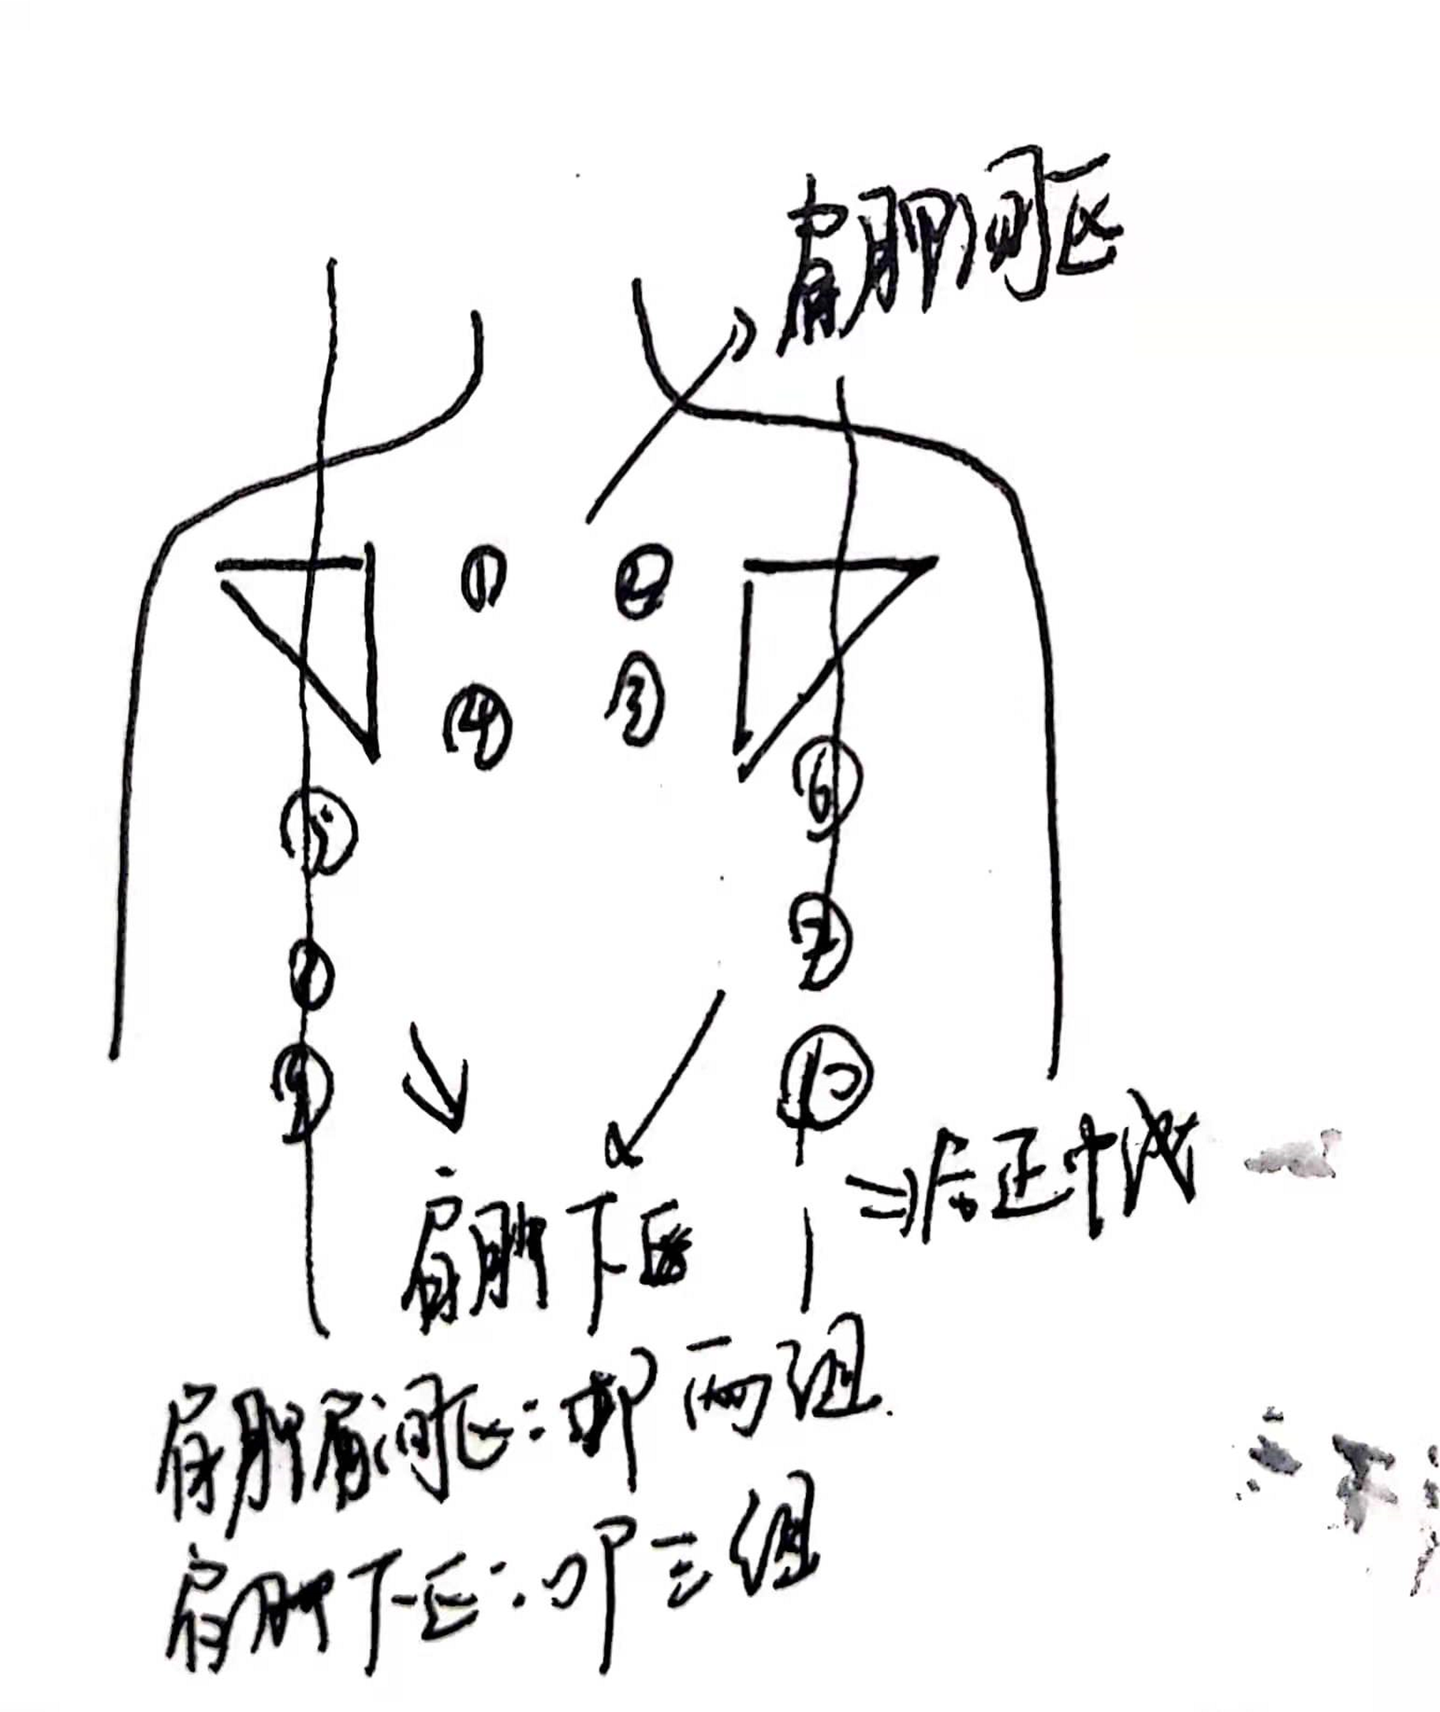 肩胛间区
① ②
④ ③
⑤ ⑥
⑦
⑨ ⑩
肩胛下区
⇒后正中线
肩胛肩间区:叩两组.
肩胛下区:叩三组